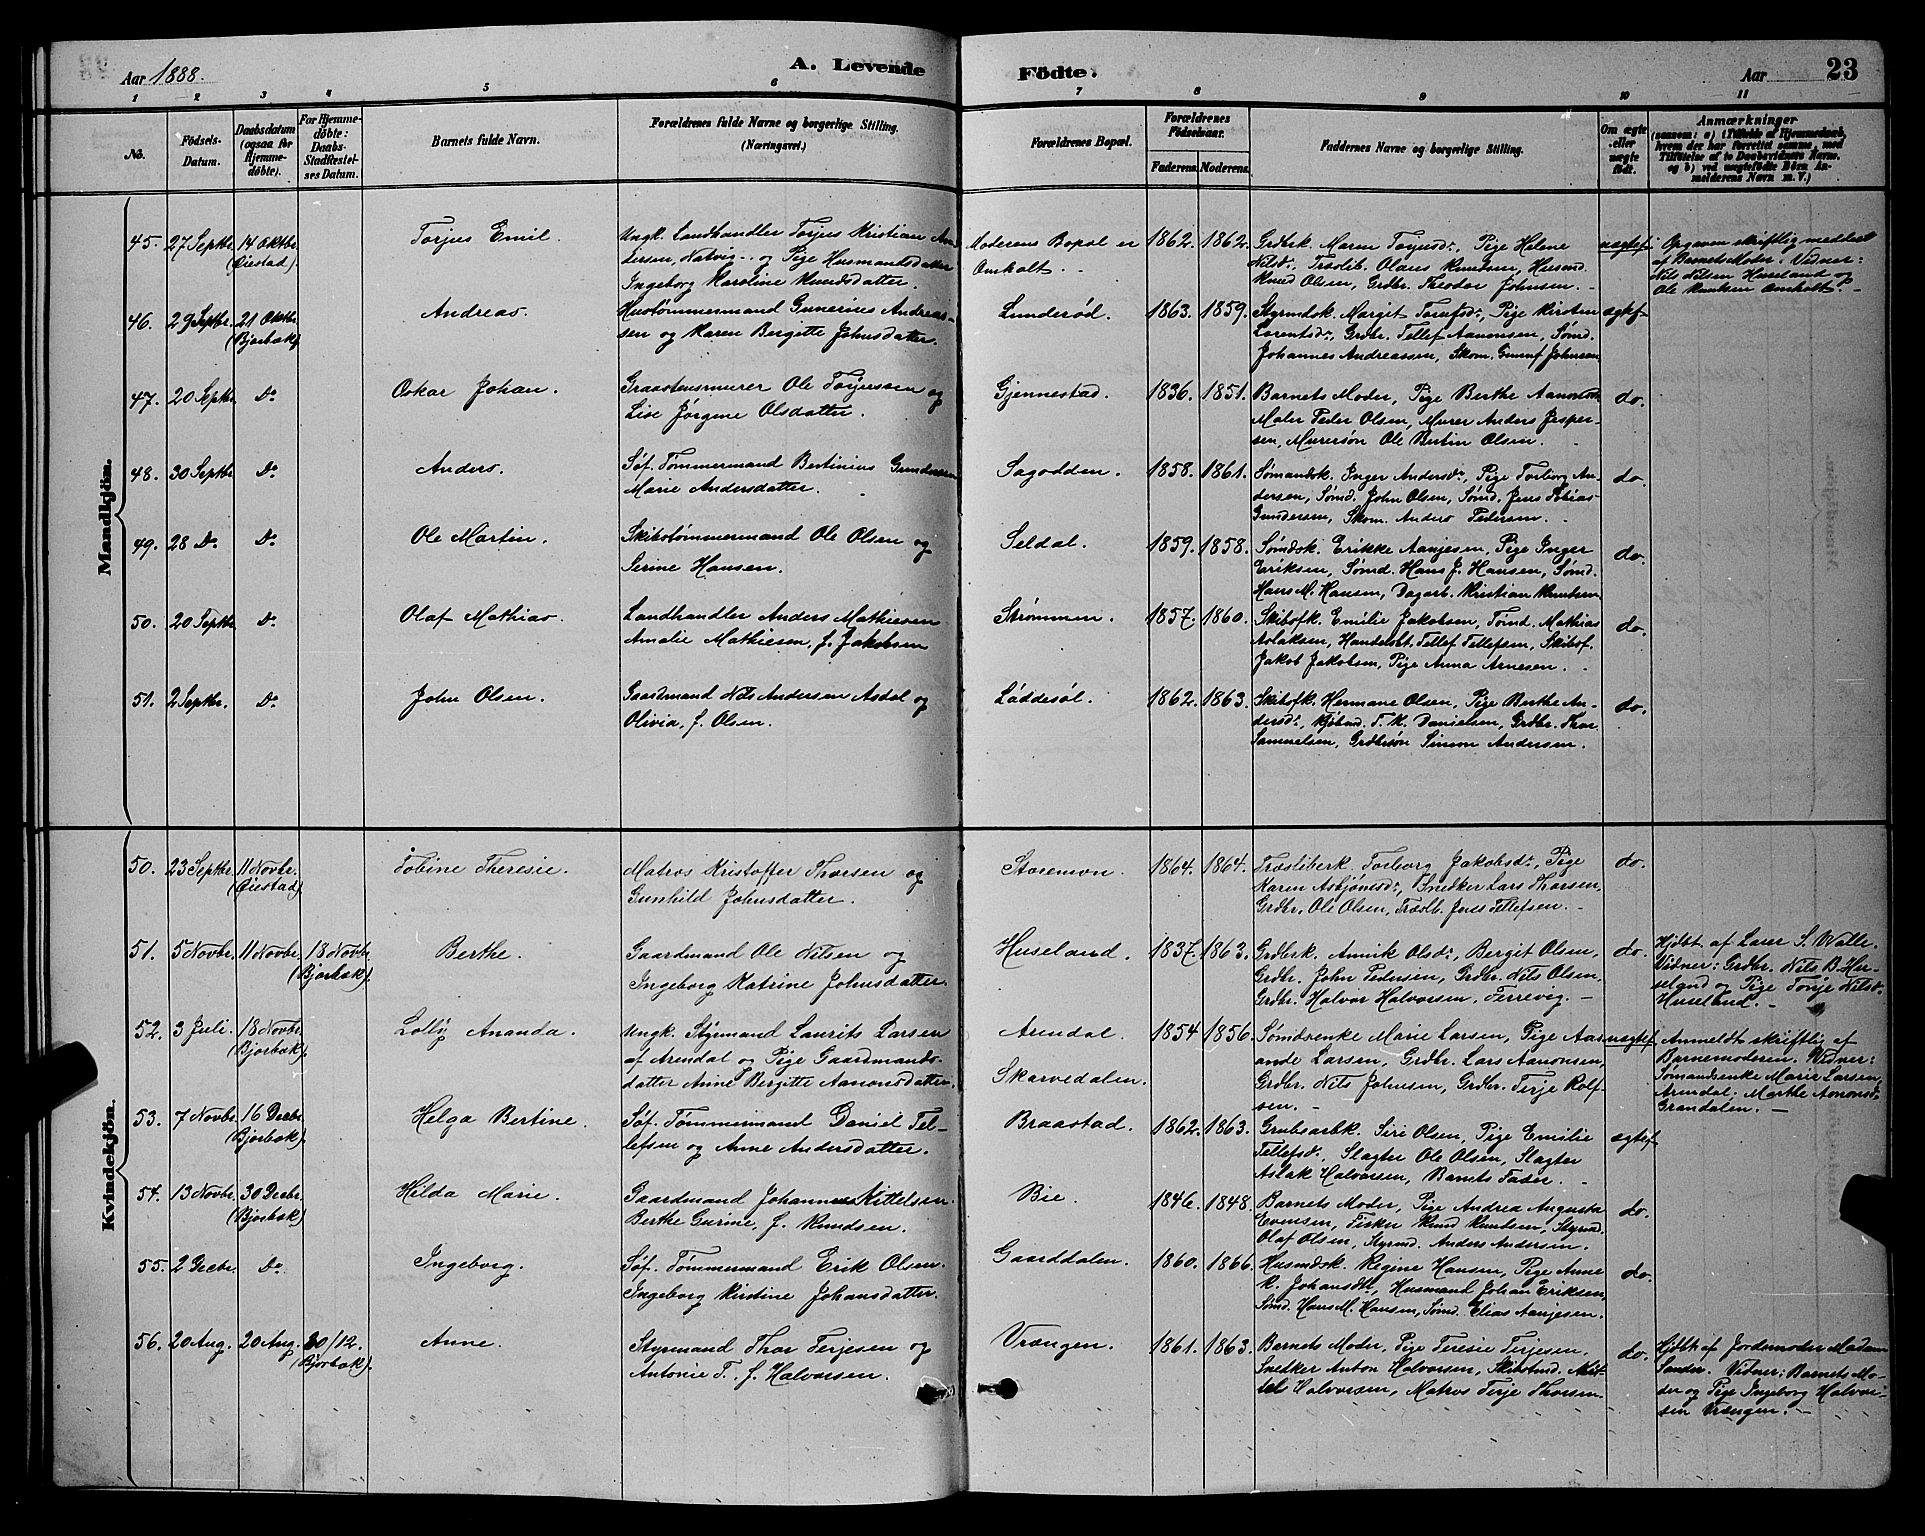 Aar 1888.
A. Levende
Födte.
Aar
23
1 2 3 4 5 6 7 8 9 10 11
No.
Födsels-
Datum.
Daabsdatum
(ogsaa for
Hjemme-
døbte).
For Hjemme-
døbte:
Daabs-
Stadfæstel-
ses Datum.
Barnets fulde Navn.
Forældrenes fulde Navne og borgerlige Stilling.
(Næringsvei.)
Forældrenes Bopæl.
Forældrenes
Fødselsaar.
Faderens. Moderens.
Faddernes Navne og borgerlige Stilling.
Om ægte
eller
uægte
født.
Anmærkninger
(saasom: a) i Tilfælde af Hjemmedaab,
hvem der har forrettet samme, med
Tilføielse af to Daabsvidners Navne,
og b) ved uægtefødte Börn An-
melderens Navn m. V.)
Mandkjön.
45. 27 Septbr. 14 Oktbr. (Øiestad). Torjus Emil.
Ungk. Landhandler Torjus Kristian An-
dersen, Natvig - og Pige Husmandsdatter
Ingeborg Karoline Knudsdatter.
Moderens Bopæl er
Omholt. -
1862. 1862.
Grdbrk. Maren Torjusdr., Pige Helene
Nilsdr., Træslib. Olaus Knudsen, Husmd.
Knud Olsen, Grdbr. Theodor Johnsen. -
uægtef.
Opgaven skriftlig meddelt
af Barnets Moder. Vidner:
Nils Nilsen Huseland og
Ole Knutsen Omholt. -
46. 29 Septbr. 21 Oktbr. (Bjorbæk). Andreas.
Hustømmermand Gunerius Andreas-
sen og Karen Bergitte Johnsdatter.
Lunderød. 1863. 1859.
Styrmdsk. Margit Torefsdr., Pige Kirsten
Lorentsdr., Grdbr. Tellef Aanonsen, Sømd.
Johannes Andreassen, Skom. Gunuf Johnsen
ægtef.
47. 20 Septbr. Do. Oskar Johan.
Graastensmurer Ole Torjussen og
Lise Jørgine Olsdatter.
Gjennestad. 1836. 1851.
Barnets Moder, Pige Berthe Aanonsdr.
Maler Peder Olsen, Murer Anders Jesper-
sen, Murersøn Ole Bertin Olsen. -
do.
48. 30 Septbr. Do. Anders.
Søf. Tømmermand Bertinius Gundersen
Marie Andersdatter.
Sagodden. 1858. 1861.
Sømandsk. Inger Andersdr., Pige Torborg An-
dersen, Sømd. John Olsen, Sømd. Jens Tobias
Gundersen, Skom. Anders Pedersen. -
do.
49. 28 Do. Do. Ole Martin.
Skibstømmermand Ole Olsen og
Serine Hansen.
Seldal. 1859. 1858.
Sømdsk. Erikke Aanjesen, Pige Inger
Eriksen, Sømd. Hans J. Hansen, Sømd.
Hans M. Hansen, Dagarb. Kristian Knutsen
do.
50. 20 Septbr. Do. Olaf Mathias.
Landhandler Anders Mathiesen
Amalie Mathiesen, f. Jakobsen
Strømmen. 1857. 1860.
Skibsfk. Emilie Jakobsen, Tømd. Mathias
Aslaksen, Handelsbt. Tellef Tellefsen, Skibsf.
Jakob Jakobsen, Pige Anna Arnesen. -
do.
51. 2 Septbr. Do. John Olsen.
Gaardmand Nils Andersen Asdal og
Olivia, f. Olsen.
Løddesøl. 1862. 1863.
Skibsfk. Hermane Olsen, Pige Berthe An-
dersdr., Kjøbmd. T. K. Danielsen, Grdbr. Thor
Samuelsen, Grdbrsøn Simon Andersen.
do.
Kvindekjön.
50. 23 Septbr. 11 Novbr. (Øiestad). Tobine Theresie.
Matros Kristoffer Thorsen og
Gunhild Johnsdatter.
Storemon. 1864. 1864.
Træsliberk. Torborg Jakobsdr., Pige
Karen Asbjönsdr., Snedker Lars Thorsen,
Grdbr. Ole Olsen, Træslb. Jens Tellefsen. -
do.
51. 5 Novbr. 11 Novbr. 18 Novbr. (Bjorbæk). Berthe.
Gaardmand Ole Nilsen og
Ingeborg Katrine Johnsdatter.
Huseland. 1837. 1863.
Grdbrk. Annik Olsdr., Bergit Olsen,
Grdbr. John Pedersen, Grdbr. Nils Olsen,
Grdbr. Halvor Halvorsen, Ferrevig. -
do.
Hjdbt. af Lærer S. Walle.
Vidner: Grdbr. Nils B. Hu-
seland og Pige Tonje Nilsdr.
Huseland. -
52. 3 Juli. 18 Novbr. (Bjorbæk). Lolly Ananda.
Ungk. Styrmand Laurits Larsen
af Arendal og Pige Gaardmands-
datter Anne Bergitte Aanonsdatter.
Arendal.
Skarvedalen.
1854 1856.
Sømdsenke Marie Larsen, Pige Aas-
ande Larsen, Grdbr. Lars Aanonsen,
Grdbr. Nils Johnsen, Grdbr. Terje Rolf-
sen. -
uægtef.
Anmeldt skriftlig af
Barnemoderen. Vidner:
Sømandsenke Marie Larsen,
Arendal; Marthe Aanonsdr.
Grandalen. -
53. 7 Novbr. 16 Decbr. (Bjorbæk). Helga Bertine.
Søf. Tømmermand Daniel Tel-
lefsen og Anne Andersdatter.
Braastad. 1862. 1863.
Grubsarbk. Siri Olsen, Pige Emilie
Tellefsdr., Slagter Ole Olsen, Slagter
Aslak Halvorsen, Barnets Fader. -
ægtef.
54. 13 Novbr. 30 Decbr. (Bjorbæk). Hilda Marie.
Gaardmand Johannes Kittelsen.
Berthe Gurine, f. Knudsen.
Bie. 1846. 1848.
Barnets Moder, Pige Andrea Augusta
Evensen, Fisker Knud Knudsen, Styrmd.
Olaf Olsen, Styrmd. Anders Andersen.
do.
55. 2 Decbr. Do. Ingeborg.
Søf. Tømmermand Erik Olsen.
Ingeborg Kirstine Johansdatter.
Gaarddalen. 1860. 1866.
Husmdsk. Regine Hansen, Pige Anne
K. Johansdtr., Husmand Johan Eriksen,
Sømd. Hans M. Hansen, Sømd. Elias Aanjesen.
do.
56. 20 Aug. 20 Aug. 30/12. (Bjorbæk). Anne.
Styrmand Thor Terjesen og
Antonie T. f. Halvorsen.
Vrængen. 1861. 1863.
Barnets Moder, Pige Teresie Terjesen,
Snedker Anton Halvorsen, Skibstmd. Kit-
tel Halvorsen, Matros Terje Thorsen.
do.
Hjdbt. af Jordemoder Madam
Sander. Vidner: Barnets Mo-
der og Pige Ingeborg Halvor-
sen Vrængen. -